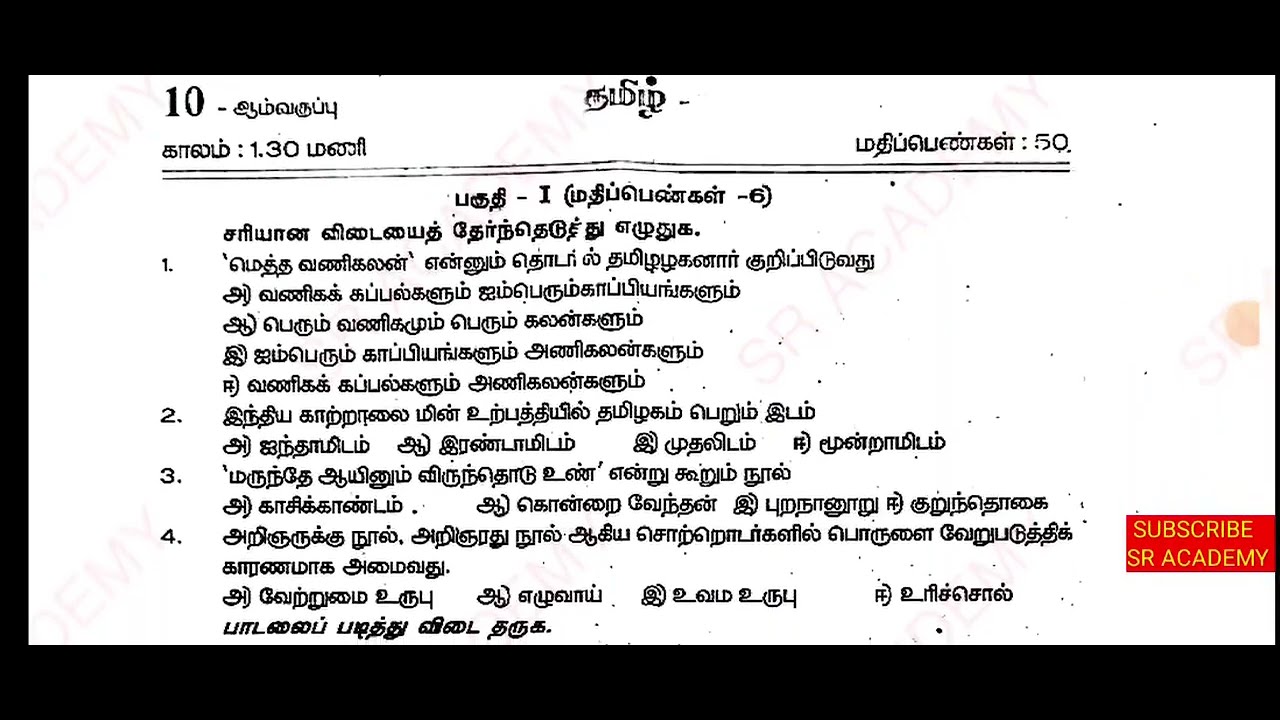 10 - ஆம்வகுப்பு
தமிழ் -
காலம் : 1.30 மணி
மதிப்பெண்கள் : 50
பகுதி - I (மதிப்பெண்கள் -6)
சரியான விடையைத் தேர்ந்தெடுத்து எழுதுக.
1. 'மெத்த வணிகலன்' என்னும் தொடரில் தமிழழகனார் குறிப்பிடுவது
அ) வணிகக் கப்பல்களும் ஐம்பெரும்காப்பியங்களும்
ஆ) பெரும் வணிகமும் பெரும் கலன்களும்
இ) ஐம்பெரும் காப்பியங்களும் அணிகலன்களும்
ஈ) வணிகக் கப்பல்களும் அணிகலன்களும்
2. இந்திய காற்றாலை மின் உற்பத்தியில் தமிழகம் பெறும் இடம்
அ) ஐந்தாமிடம் ஆ) இரண்டாமிடம் இ) முதலிடம் ஈ) மூன்றாமிடம்
3. 'மருந்தே ஆயினும் விருந்தொடு உண்' என்று கூறும் நூல்
அ) காசிக்காண்டம் . ஆ) கொன்றை வேந்தன் இ) புறநானூறு ஈ) குறுந்தொகை
4. அறிஞருக்கு நூல், அறிஞரது நூல் ஆகிய சொற்றொடர்களில் பொருளை வேறுபடுத்திக்
காரணமாக அமைவது.
அ) வேற்றுமை உருபு ஆ) எழுவாய் இ) உவம உருபு ஈ) உரிச்சொல்
பாடலைப் படித்து விடை தருக.
SUBSCRIBE
SR ACADEMY
SR ACADEMY